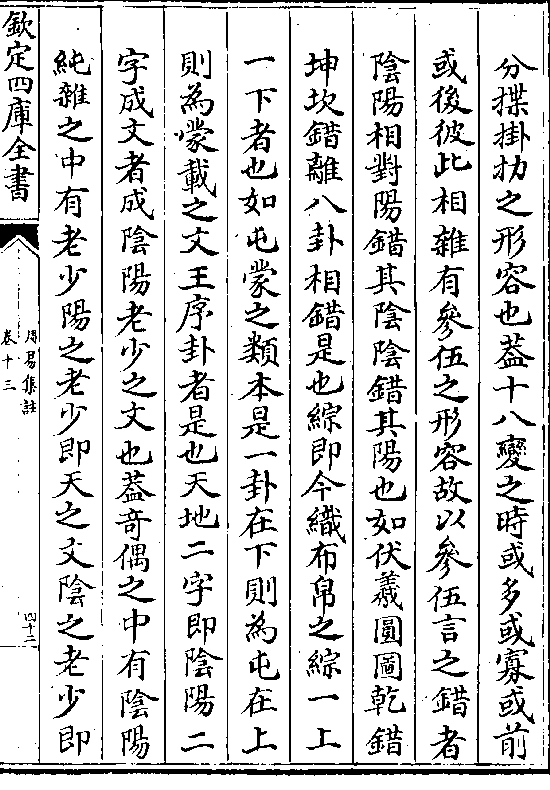 分揲掛扐之形容也葢十八變之時或多或寡或前
或後彼此相雜有參伍之形容故以參伍言之錯者
陰陽相對陽錯其陰陰錯其陽也如伏羲圓圖乾錯
坤坎錯離八卦相錯是也綜即今織布帛之綜一上
一下者也如屯蒙之類本是一卦在下則為屯在上
則為蒙載之文王序卦者是也天地二字即陰陽二
字成文者成陰陽老少之文也葢奇偶之中有陰陽
純雜之中有老少陽之老少即天之文陰之老少即
欽定四庫全書
周易集註
卷十三
四十三